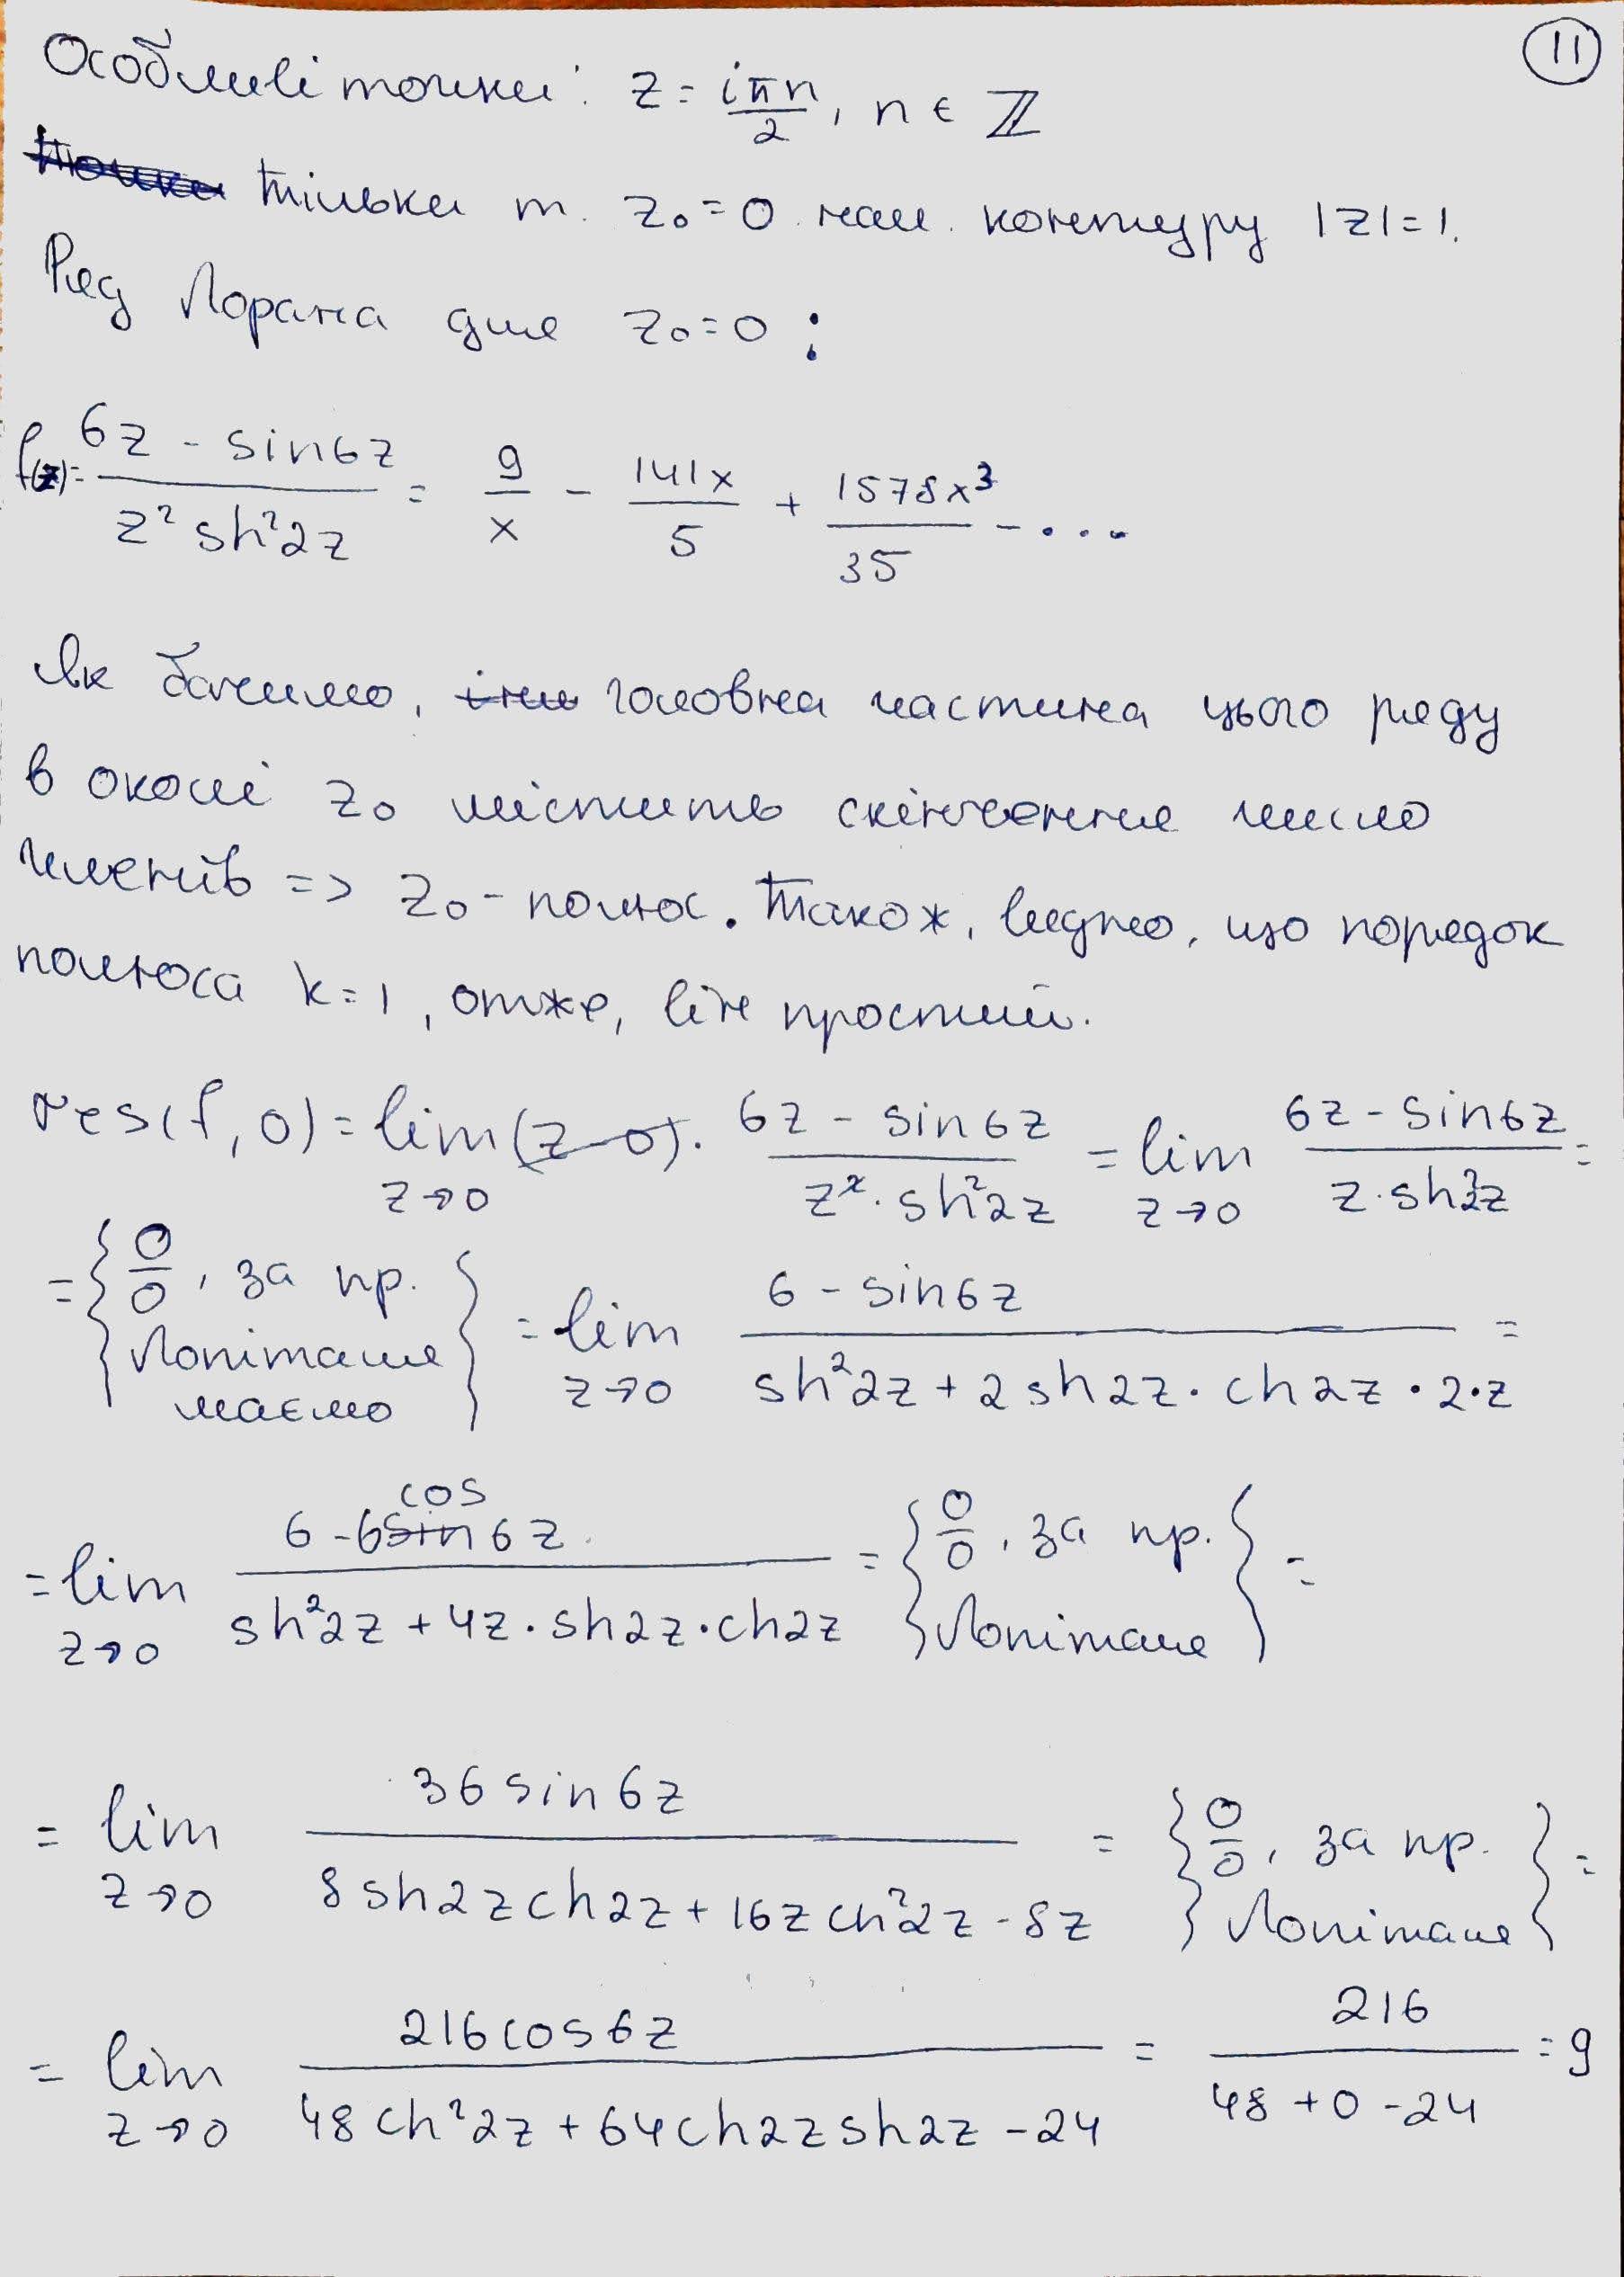 11
Особливі точки: z = iπn/2, n ∈ ℤ
Тільки т. z₀ = 0 нал. контуру |z| = 1.
Ряд Лорана для z₀ = 0 :
f(z) = (6z - sin6z)/(z² sh²2z) = 9/x - 141x/5 + 1578x³/35 - ...
Як бачимо, головна частина цього ряду
в околі z₀ містить скінченне число
членів => z₀ - полюс. Також, видно, що порядок
полюса k = 1, отже, він простий.
res(f, 0) = lim z→0 (z-0) · (6z - sin6z)/(z² · sh²2z) = lim z→0 (6z - sin6z)/(z · sh²2z) =
= {0/0, за пр. Лопіталя маємо} = lim z→0 (6 - sin6z)/(sh²2z + 2sh2z · ch2z · 2 · z) =
= lim z→0 (6 - 6cos6z)/(sh²2z + 4z · sh2z · ch2z) = {0/0, за пр. Лопіталя} =
= lim z→0 (36sin6z)/(8sh2zch2z + 16zch²2z - 8z) = {0/0, за пр. Лопіталя} =
= lim z→0 (216cos6z)/(48ch²2z + 64ch2zsh2z - 24) = 216/(48 + 0 - 24) = 9